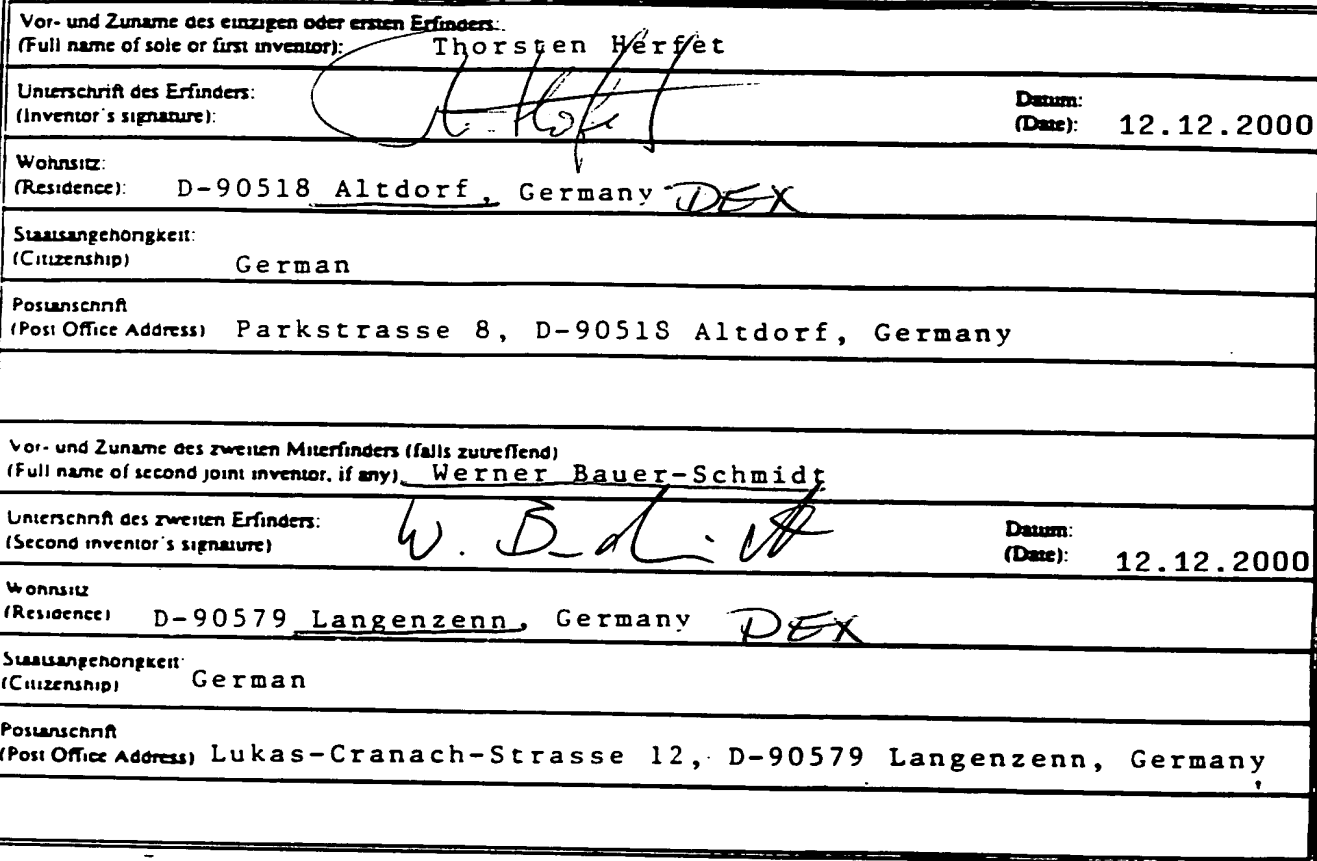 Vor- und Zuname des einzigen oder ersten Erfinders:
(Full name of sole or first inventor): Thorsten Herfet
Unterschrift des Erfinders:
(Inventor's signature):
Datum:
(Date): 12.12.2000
Wohnsitz:
(Residence): D-90518 Altdorf, Germany DEX
Staatsangehörigkeit:
(Citizenship) German
Postanschrift
(Post Office Address) Parkstrasse 8, D-90518 Altdorf, Germany
Vor- und Zuname des zweiten Miterfinders (falls zutreffend)
(Full name of second joint inventor, if any) Werner Bauer-Schmidt
Unterschrift des zweiten Erfinders:
(Second inventor's signature) W.
Datum:
(Date): 12.12.2000
Wohnsitz
(Residence) D-90579 Langenzenn, Germany DEX
Staatsangehörigkeit:
(Citizenship) German
Postanschrift
(Post Office Address) Lukas-Cranach-Strasse 12, D-90579 Langenzenn, Germany